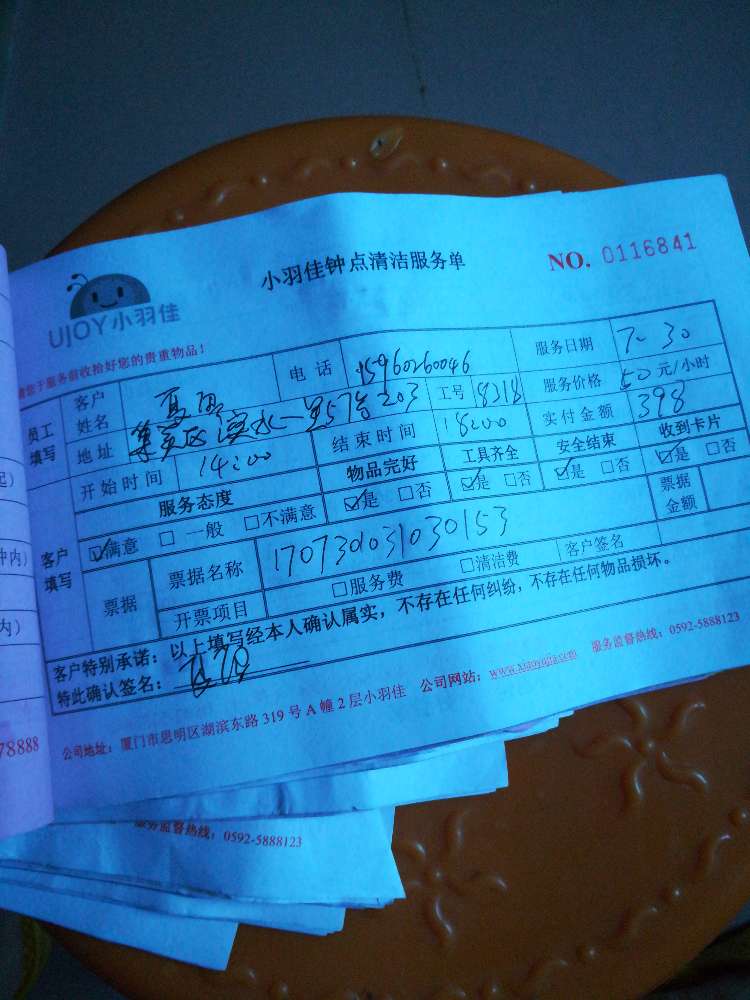 UJOY小羽佳
小羽佳钟点清洁服务单
NO. 0116841
请您于服务前收拾好您的贵重物品！
员工填写
客户姓名
电话 15960260046
服务日期 7.30
地址 集美区滨水一里57号203
工号 18218
服务价格 50元/小时
开始时间 14:00
结束时间 18:00
实付金额 398
服务态度
物品完好
工具齐全
安全结束
收到卡片
客户填写
☑满意 □一般 □不满意
☑是 □否
☑是 □否
☑是 □否
☑是 □否
票据
票据名称 1707301031030153
票据金额
开票项目 □服务费 □清洁费
客户签名
客户特别承诺：以上填写经本人确认属实，不存在任何纠纷，不存在任何物品损坏。
特此确认签名：
公司地址：厦门市思明区湖滨东路319号A幢2层小羽佳 公司网站：www.xiaoyujia.com 服务监督热线：0592-5888123
78888
服务监督热线：0592-5888123